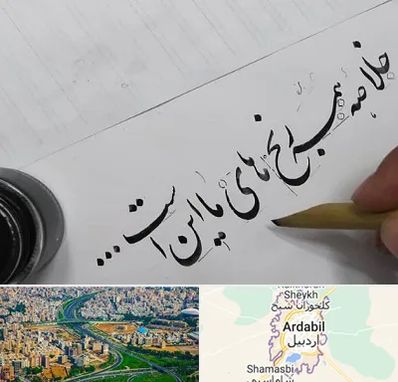 خلاصه همه رنج های ما این است...
Sheykh
کلخوران شیخ
Ardabil
اردبیل
Shamasbi